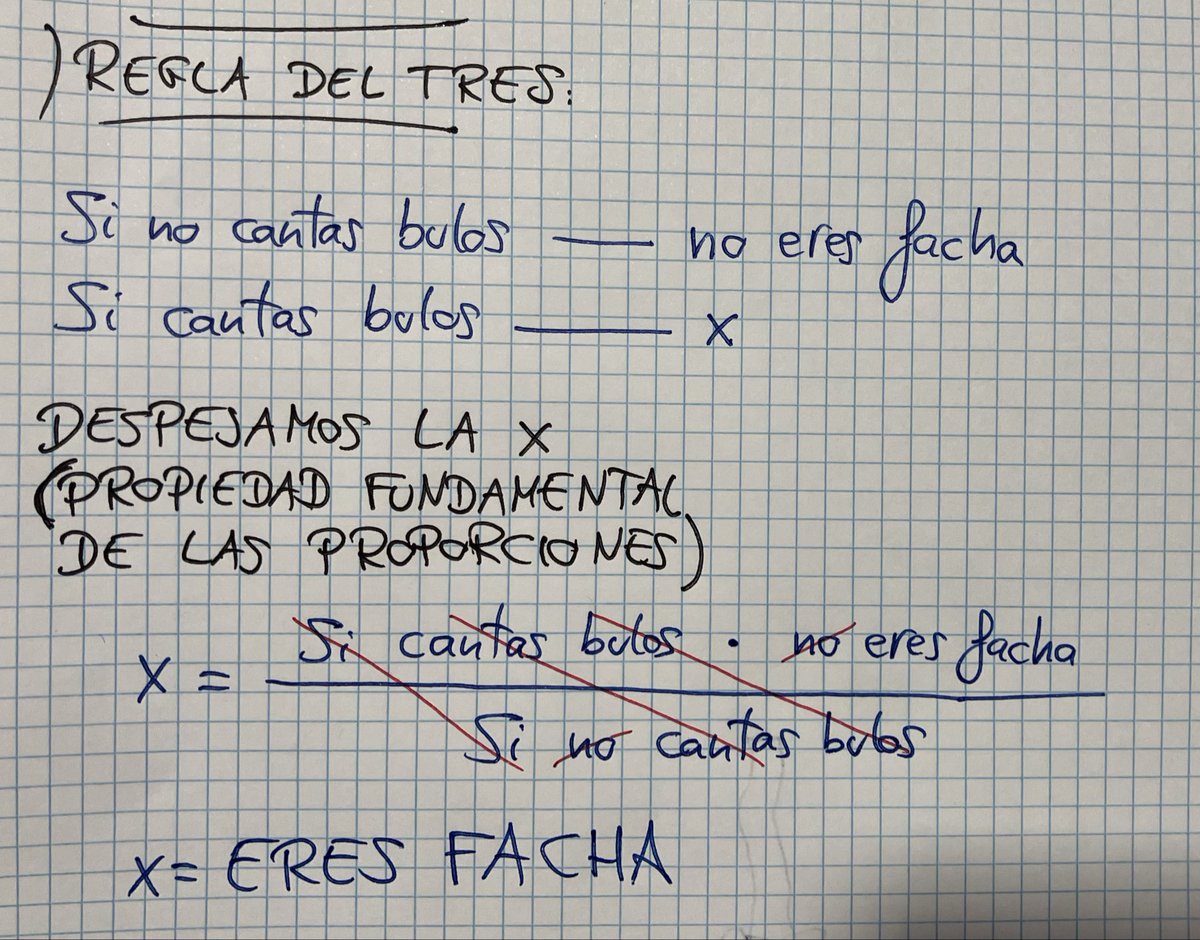 ) REGLA DEL TRES:
Si no cantas bulos — no eres facha
Si cantas bulos — x
DESPEJAMOS LA X
(PROPIEDAD FUNDAMENTAL
DE LAS PROPORCIONES)
x = Si cantas bulos · no eres facha
Si no cantas bulos
x = ERES FACHA